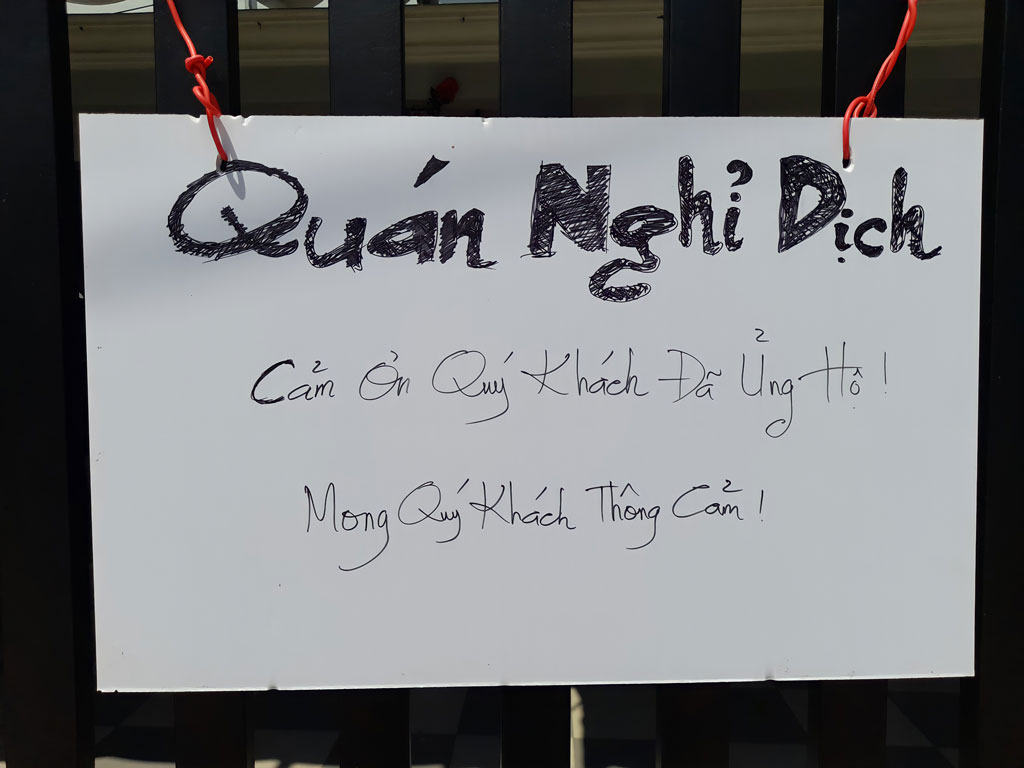 Quán Nghỉ Dịch
Cảm Ơn Quý Khách Đã Ủng Hộ!
Mong Quý Khách Thông Cảm!